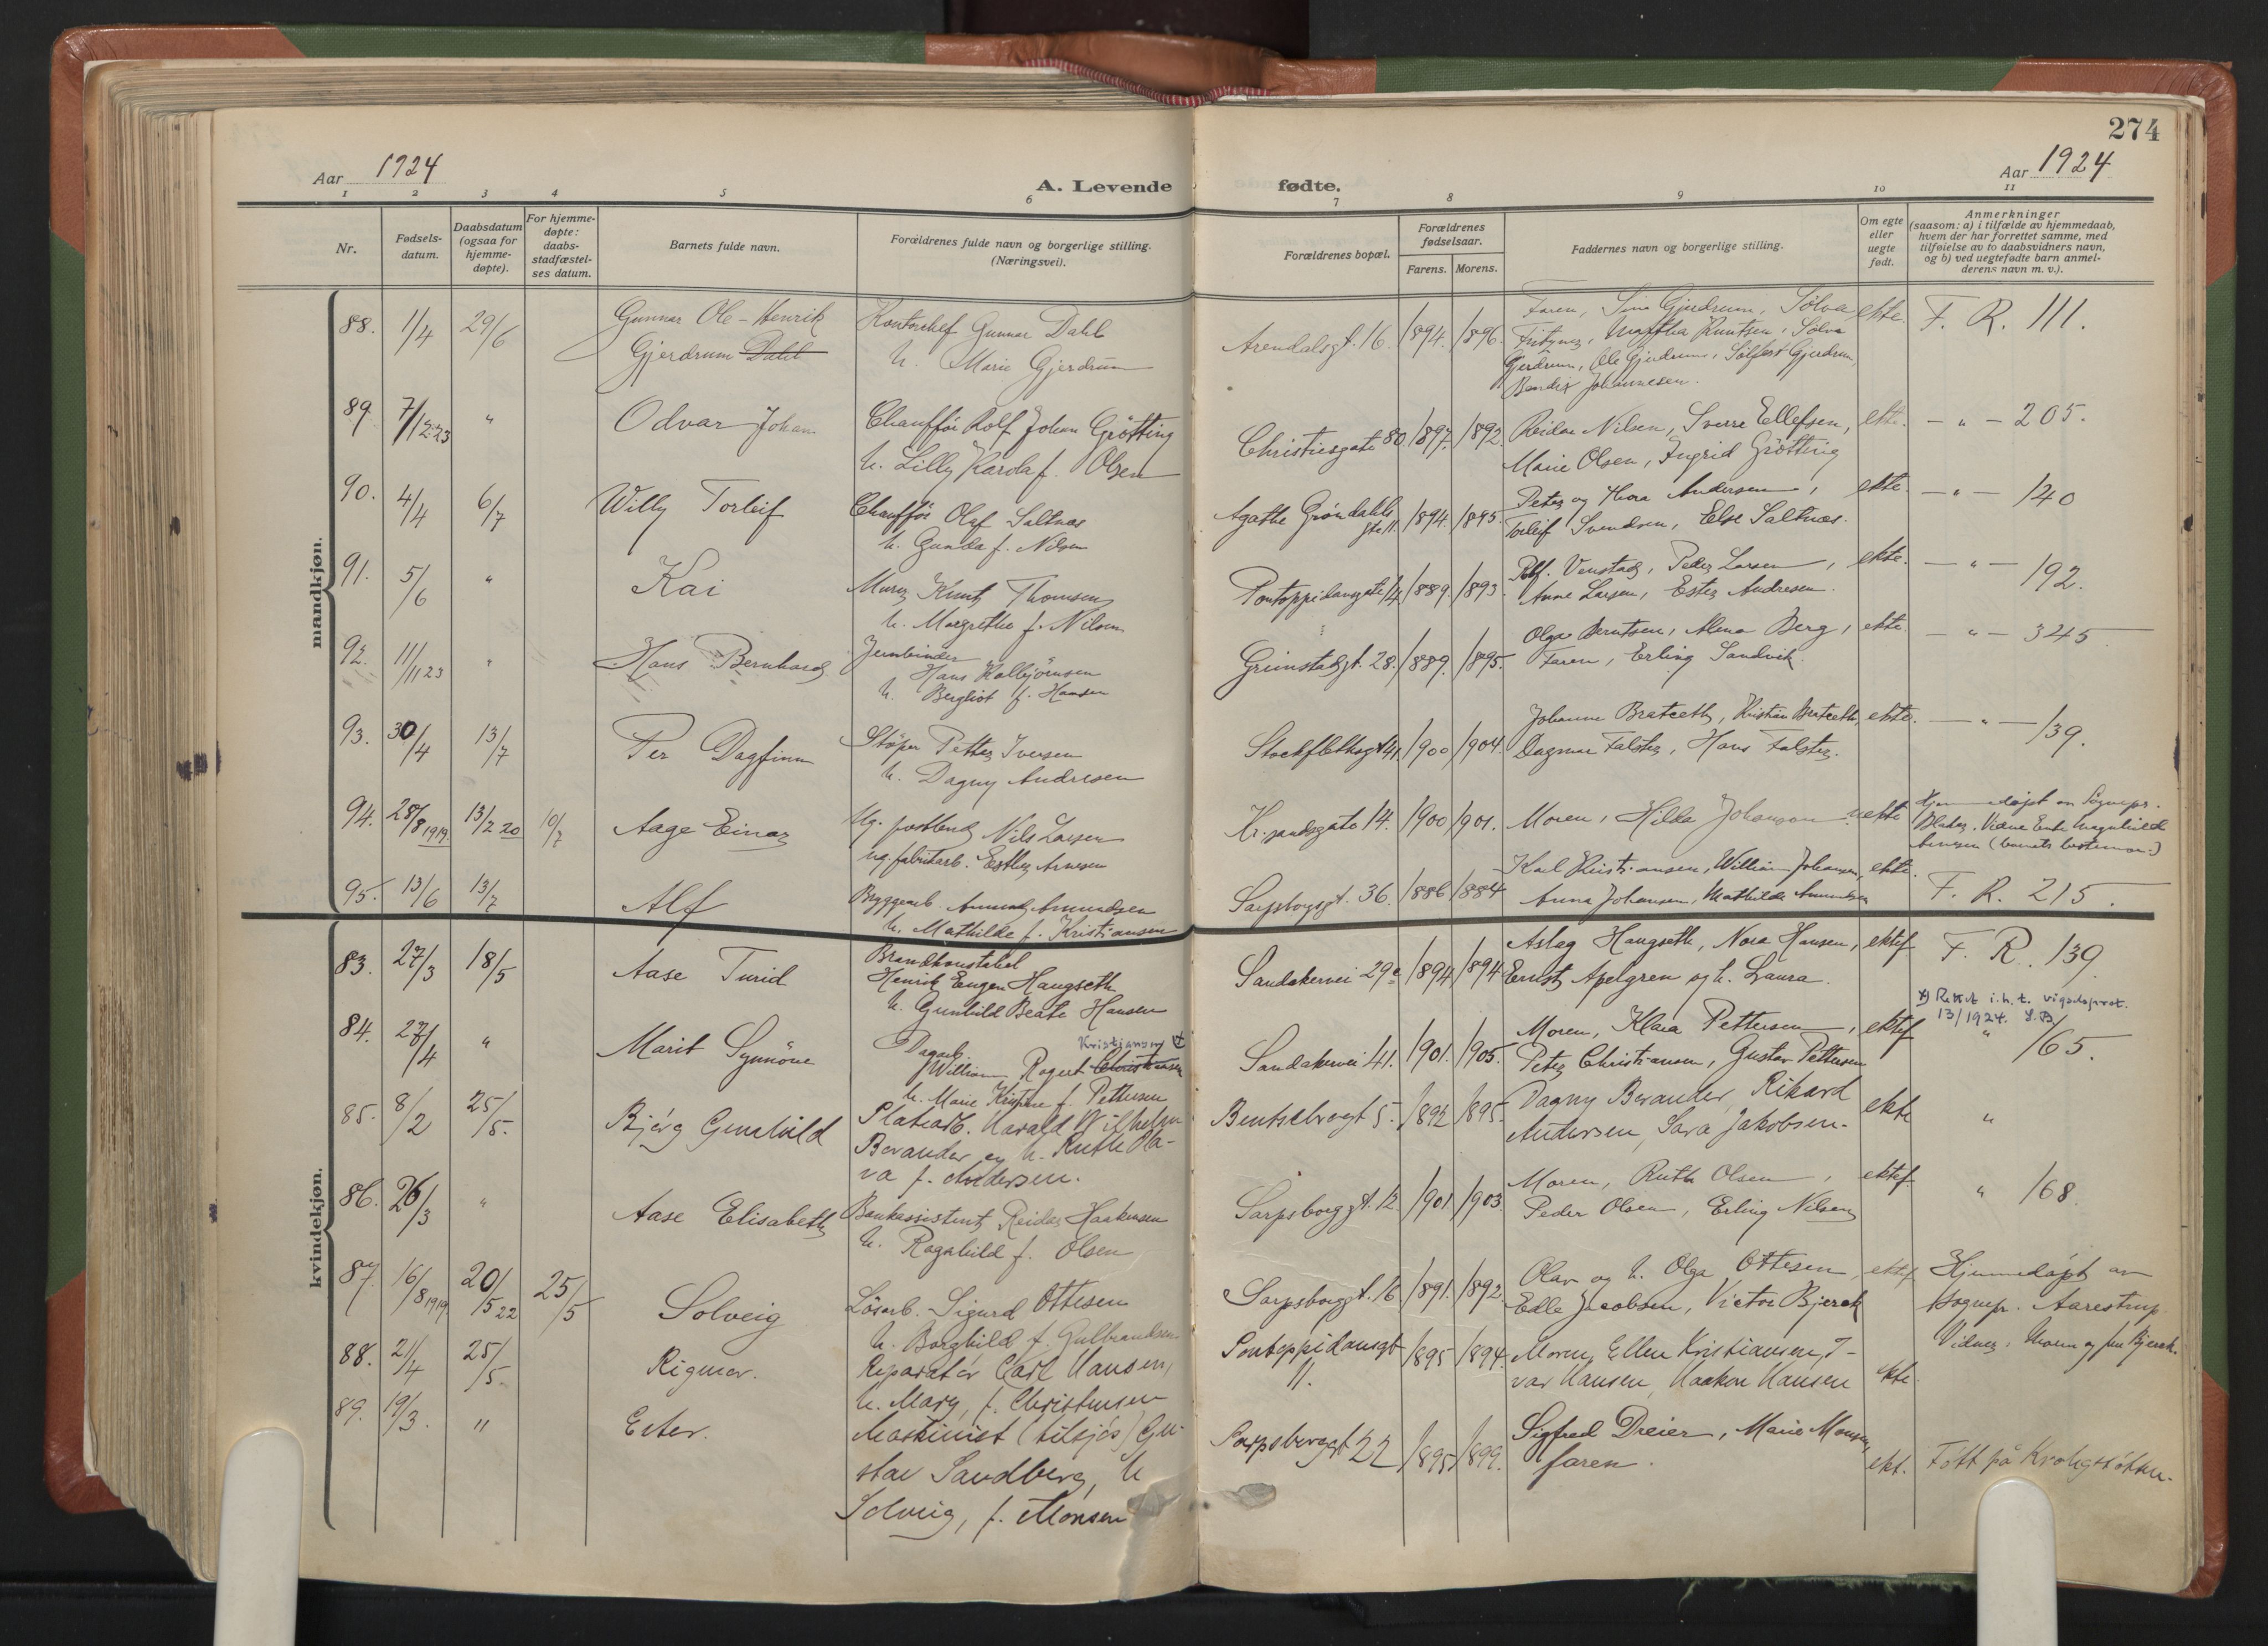 274
Aar 1924
A. Levende
fødte.
Aar 1924
1 2 3 4 5 6 7 8 9 10 11
Nr.
Fødsels-
datum.
Daabsdatum
(ogsaa for
hjemme-
døpte).
For hjemme-
døpte:
daabs-
stadfæstel-
ses datum.
Barnets fulde navn.
Forældrenes fulde navn og borgerlige stilling.
(Næringsvei).
Forældrenes bopæl.
Forældrenes
fødselsaar.
Farens. Morens.
Faddernes navn og borgerlige stilling.
Om egte
eller
uegte
født.
Anmerkninger
(saasom: a) i tilfælde av hjemmedaab,
hvem der har forrettet samme, med
tilføielse av to daabsvidners navn,
og b) ved uegtefødte barn anmel-
derens navn m. v.).
mandkjøn.
88. 1/4 29/6
Gunnar Ole-Henrik
Gjerdrum Dahl
Kontorchef Gunnar Dahl
h. Marie Gjerdrum
Arendalsgt. 16. 1894. 1896.
Faren, Gjerdrum, Sølva
Knutsen, Sølva
Gjerdrum, Ole Gjerdrum, Gjerdrum,
Bendix Johannesen.
ekte. F. R. 111.
89. 7/12.23 "
Odvar Johan
Chauffør Rolf Johan Grøtting
h. Lilly Karola f. Olsen
Christiesgate 80. 1897. 1892.
Reidar Nilsen, Sverre Ellefsen,
Marie Olsen, Ingrid Grøtting
ekte. — " — 205.
90. 4/4 6/7
Willy Torleif
Chauffør Olaf Saltnes
h. Gunda f. Nilsen
Agathe Grøndahls
gte 11. 1894. 1895.
Peter og Thora Andersen,
Torleif Svendsen, Else Saltnes.
ekte. — " — 140
91. 5/6 "
Kai
Murer Knut Thomsen
h. Margrethe f. Nilsen
Pontoppidansgate 14 1889. 1893.
Venstad, Peder Larsen,
Anne Larsen, Ester Andresen.
ekte. — " — 192.
92. 11/11 23 "
Hans Bernhard
Jernbinder
Hans Kolbjørnsen
h. Bergliot f. Hansen
Grimstadgt. 28. 1889. 1895.
Olga Berntsen, Alma Berg,
Faren, Erling Sandvik.
ekte. — " — 345
93. 30/4 13/7
Per Dagfinn
Støper Petter Iversen
h. Dagny Andresen
Stockflethsgt 41. 1900 1904.
Johanne Brateeth, Kristian Brateeth,
Dagmar Falster, Hans Falster.
ekte. — " — 139.
94. 28/8 1919. 13/2 20 10/7
Aage Einar
Ug. postbud Nils Larsen
ug. fabrikarb. Esther Arnesen
Kr.sandsgate 14. 1900 1901.
Moren, Hilda Johansen
uekte
Hjemmedøpt av Sognepr.
Enke Magnhild
Arnesen (barnets bestemor.)
95. 13/6 13/7
Alf
Bryggearb. Amund Amundsen
h. Mathilde f. Kristiansen
Sarpsborggt. 36. 1886 1884
Karl Kristiansen, William Johansen,
Anna Johansen, Mathilde Amundsen
ekte. F. R. 215.
kvindekjøn.
83. 27/3 18/5
Aase Turid
Brandkonstabel
Henrik Eugen Haugseth
h. Gunhild Beate Hansen
Sandakervei 29c 1894 1894
Aslag Haugseth, Nora Hansen,
Ernst Apelgren og h. Laura.
ektef. F. R. 139.
84. 27/4 "
Marit Synnöve
Kristiansen x)
Dagarb.
William Rogert Christiansen
h. Marie Kristine f. Pettersen
Sandakervei 41. 1901. 1905.
Moren, Klara Pettersen,
Peter Christiansen, Gustav Pettersen
ektef.
x) Rettet i.h.t. vigselsprot.
13/1924. S.B.
" 165.
85. 8/2 25/5.
Bjørg Gunhild
Platearb. Harald Wilhelm
Berander og h. Ruth Ola-
va f. Andersen.
Bentsebrogt 5. 1892 1895.
Dagny Berander, Rikard
Andersen, Sara Jakobsen.
ekte "
86. 26/3 "
Aase Elisabeth
Bankassistent Reidar Haakensen
h. Ragnhild f. Olsen
Sarpsborggt. 12. 1901. 1903.
Moren, Ruth Olsen,
Peder Olsen, Erling Nilsen
ektef. " 168.
87. 16/8 1919 20/5 22 25/5
Solveig
Løsarb. Sigurd Ottesen
h. Borghild f. Gulbrandsen
Sarpsborggt. 16 1891. 1892.
Olav og h. Olga Ottesen,
Edle Jacobsen, Victor Bjerck
ektef.
Hjemmedøpt av
sognepr. Aarestrup.
Vidner: Moren og fru Bjerck.
88. 21/4 25/5.
Rigmor.
Reparatør Carl Hansen,
h. Mary, f. Christensen
Pontoppidansgt
11. 1895 1894.
Moren, Ellen Kristiansen, I-
var Hansen, Haakon Hansen
ekte.
89. 19/3. "
Ester.
Maskinist (tilsjøs) Gu-
stav Sandberg, h
Solveig, f. Monsen
Sarpsborggt 22 1895 1899.
Sigfred Dreier, Marie Monsen,
faren.
ekt. Født på Krohgstøtten.